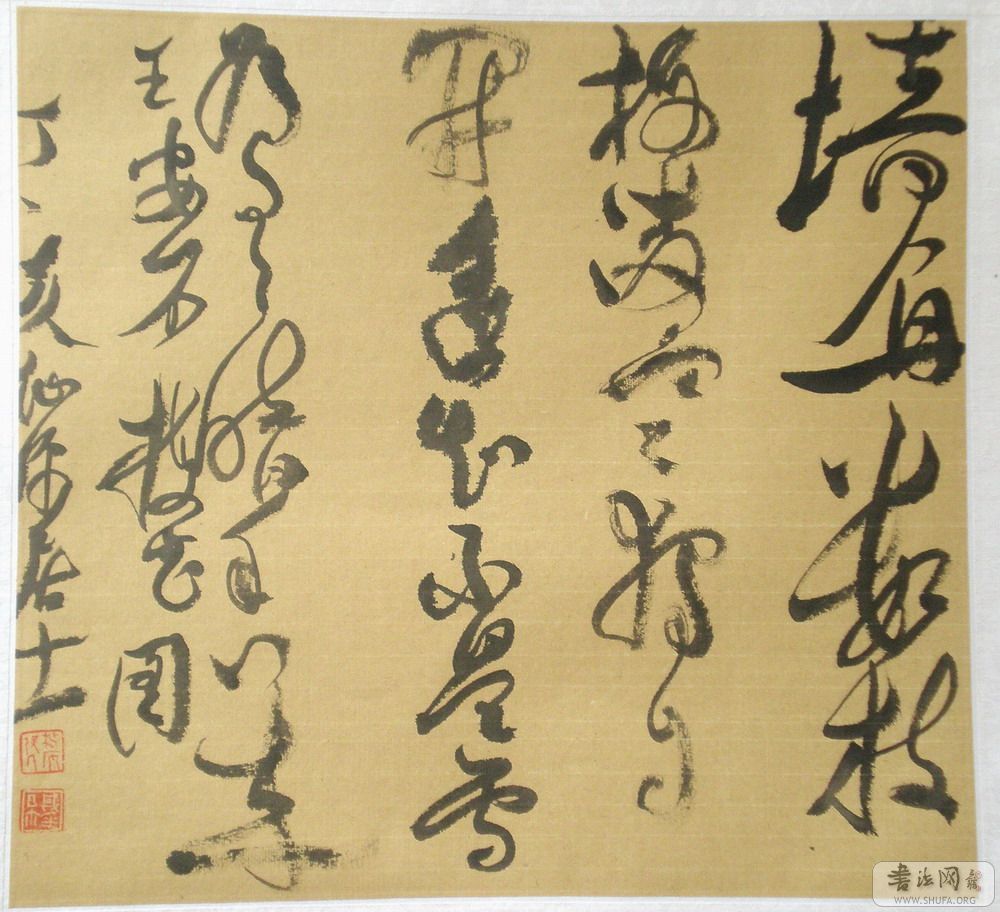 墙角数枝
梅凌寒独自
开遥知不是雪
为有暗香来
王安石梅花
丁亥仙居士
書法网
WWW.SHUFA.ORG